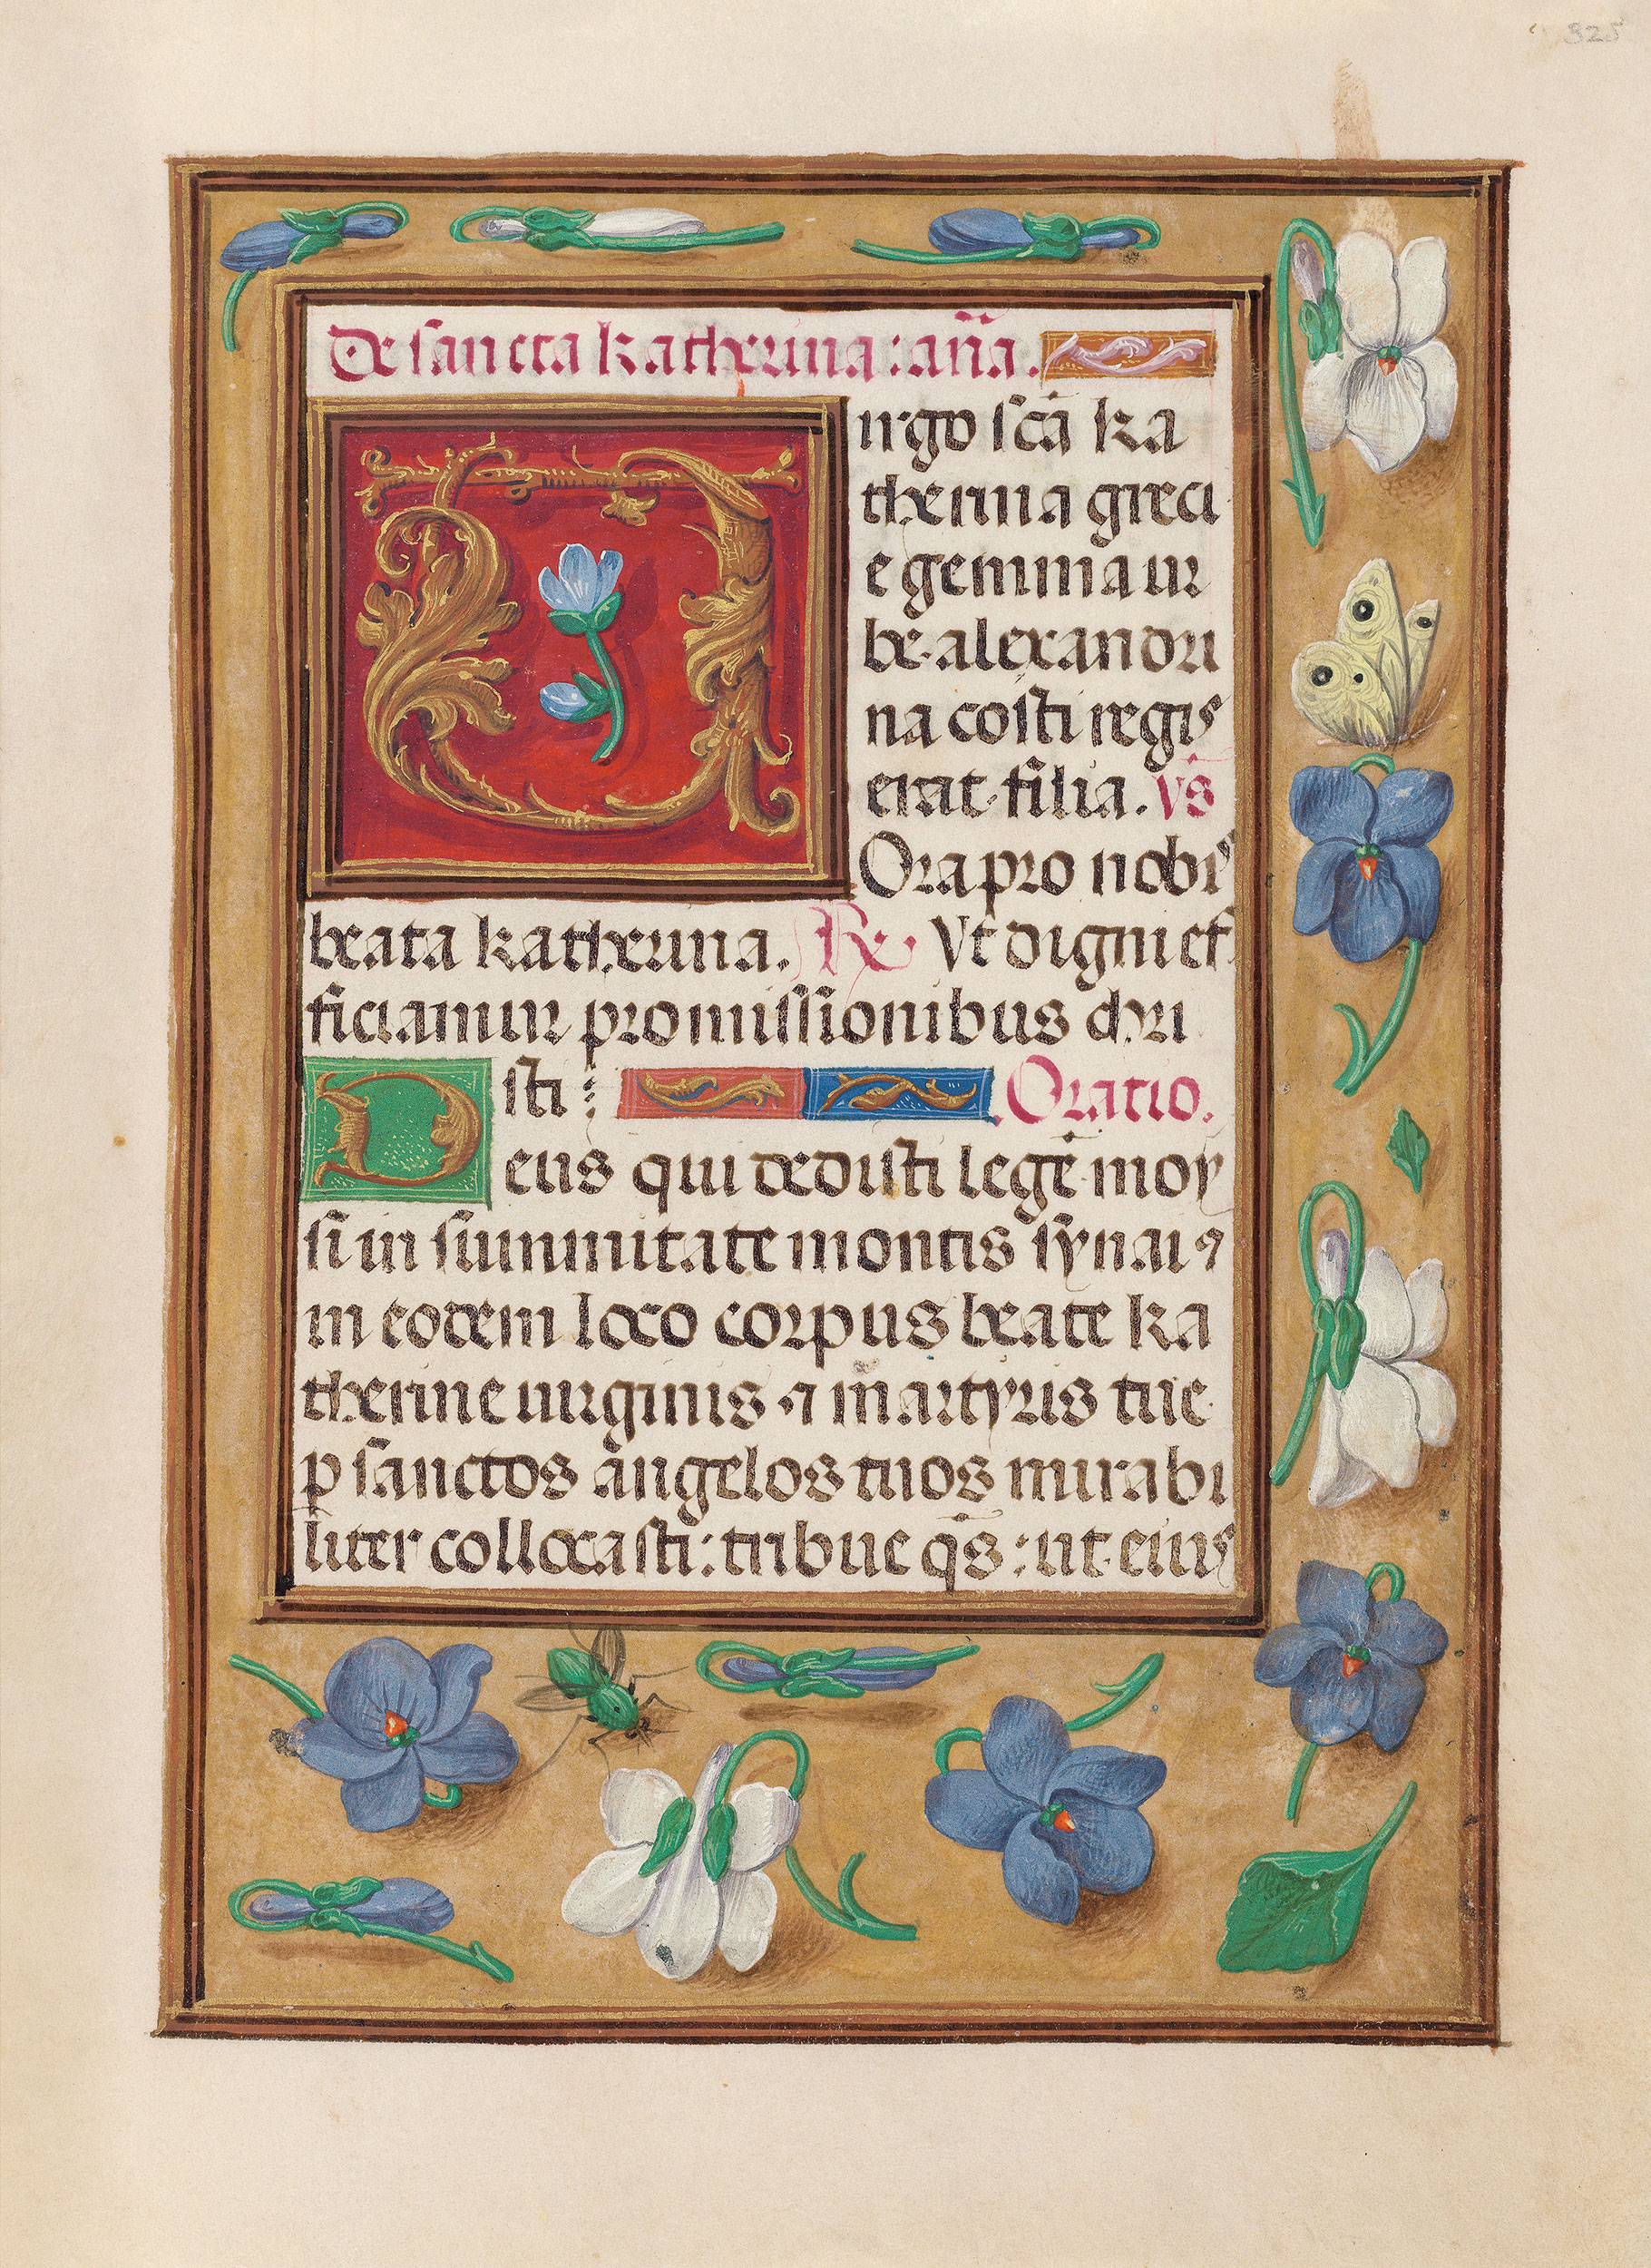 325
De sancta katherina: an̄a.
Virgo sc̄a ka
therina greci
e gemma ur
be alexandri
na costi regis
erat filia. V̄s
Ora pro nobis
beata katherina. R̷ Vt digni ef
ficiamur promissionibus chri
sti: Oratio.
Deus qui dedisti legē moy
si in summitate montis synai ⁊
in eodem loco corpus beate ka
therine uirginis ⁊ martyris tue
ꝑ sanctos angelos tuos mirabi
liter collocasti: tribue q̄s: ut eius